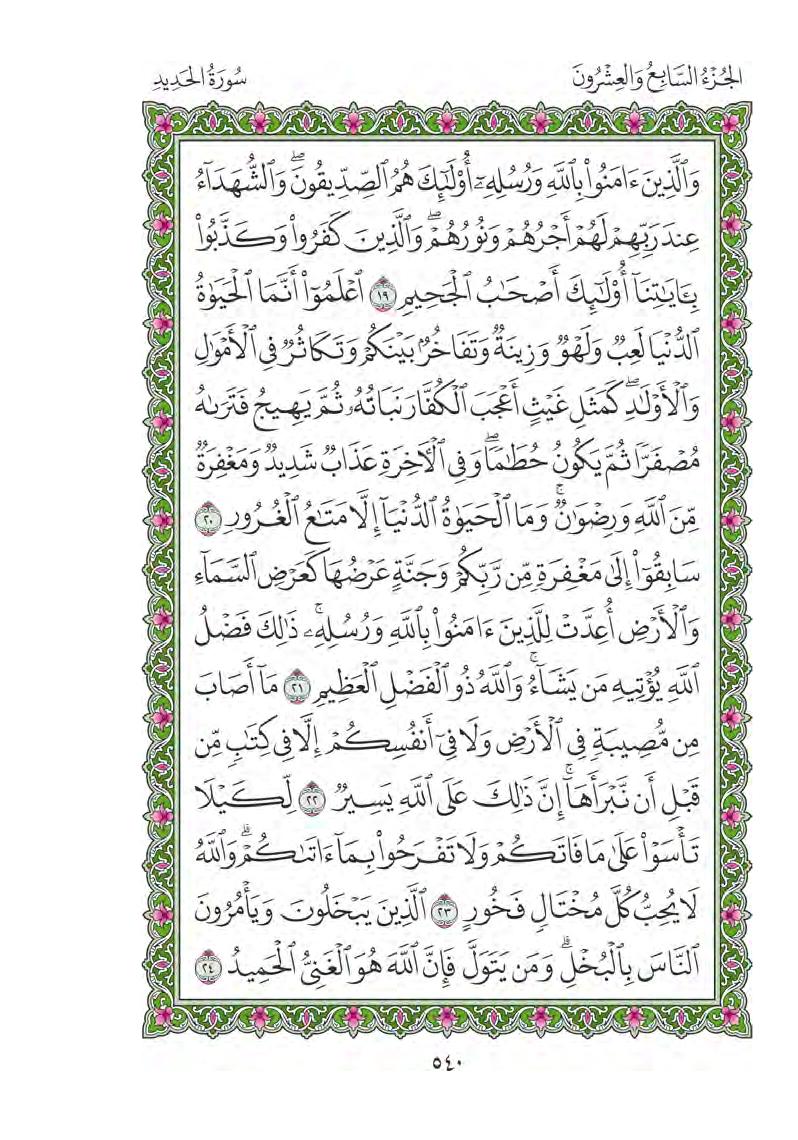 الجُزْءُ السَّابِعُ وَالعِشْرُونَ
سُورَةُ الحَدِيدِ
وَٱلَّذِينَ ءَامَنُواْ بِٱللَّهِ وَرُسُلِهِۦٓ أُوْلَٰٓئِكَ هُمُ ٱلصِّدِّيقُونَۖ وَٱلشُّهَدَآءُ
عِندَ رَبِّهِمْ لَهُمْ أَجْرُهُمْ وَنُورُهُمْۖ وَٱلَّذِينَ كَفَرُواْ وَكَذَّبُواْ
بِـَٔايَٰتِنَآ أُوْلَٰٓئِكَ أَصْحَٰبُ ٱلْجَحِيمِ ١٩ ٱعْلَمُوٓاْ أَنَّمَا ٱلْحَيَوٰةُ
ٱلدُّنْيَا لَعِبٌ وَلَهْوٌ وَزِينَةٌ وَتَفَاخُرٌۢ بَيْنَكُمْ وَتَكَاثُرٌ فِي ٱلْأَمْوَٰلِ
وَٱلْأَوْلَٰدِۖ كَمَثَلِ غَيْثٍ أَعْجَبَ ٱلْكُفَّارَ نَبَاتُهُۥ ثُمَّ يَهِيجُ فَتَرَىٰهُ
مُصْفَرًّا ثُمَّ يَكُونُ حُطَٰمًاۖ وَفِي ٱلْأٓخِرَةِ عَذَابٌ شَدِيدٌ وَمَغْفِرَةٌ
مِّنَ ٱللَّهِ وَرِضْوَٰنٌۚ وَمَا ٱلْحَيَوٰةُ ٱلدُّنْيَآ إِلَّا مَتَٰعُ ٱلْغُرُورِ ٢٠
سَابِقُوٓاْ إِلَىٰ مَغْفِرَةٍ مِّن رَّبِّكُمْ وَجَنَّةٍ عَرْضُهَا كَعَرْضِ ٱلسَّمَآءِ
وَٱلْأَرْضِ أُعِدَّتْ لِلَّذِينَ ءَامَنُواْ بِٱللَّهِ وَرُسُلِهِۦۚ ذَٰلِكَ فَضْلُ
ٱللَّهِ يُؤْتِيهِ مَن يَشَآءُۚ وَٱللَّهُ ذُو ٱلْفَضْلِ ٱلْعَظِيمِ ٢١ مَآ أَصَابَ
مِن مُّصِيبَةٍ فِي ٱلْأَرْضِ وَلَا فِيٓ أَنفُسِكُمْ إِلَّا فِي كِتَٰبٍ مِّن
قَبْلِ أَن نَّبْرَأَهَآۚ إِنَّ ذَٰلِكَ عَلَى ٱللَّهِ يَسِيرٌ ٢٢ لِّكَيْلَا
تَأْسَوْاْ عَلَىٰ مَا فَاتَكُمْ وَلَا تَفْرَحُواْ بِمَآ ءَاتَىٰكُمْۗ وَٱللَّهُ
لَا يُحِبُّ كُلَّ مُخْتَالٍ فَخُورٍ ٢٣ ٱلَّذِينَ يَبْخَلُونَ وَيَأْمُرُونَ
ٱلنَّاسَ بِٱلْبُخْلِۗ وَمَن يَتَوَلَّ فَإِنَّ ٱللَّهَ هُوَ ٱلْغَنِيُّ ٱلْحَمِيدُ ٢٤
٥٤٠